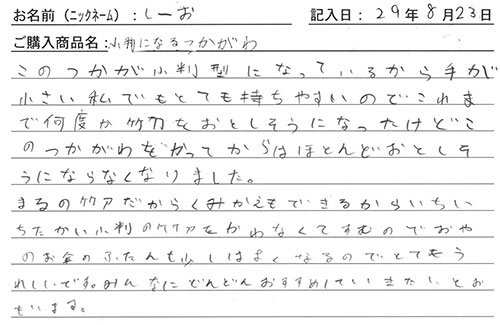 お名前（ニックネーム）：しーお　記入日：29年8月23日
ご購入商品名：小判になるつかがわ
このつかが小判型になっているから手が
小さい私でもとても持ちやすいのでこれま
で何度か竹刀をおとしそうになったけどこ
のつかがわをかってからはほとんどおとしそ
うにならなくなりました。
まるの竹刀だからくみかえもできるからいちい
ちたかい小判の竹刀をかわなくてすむのでおや
のお金のふたんも少しはよくなるのでとてもう
れしいです。みんなにどんどんおすすめしていきたいとお
もいます。